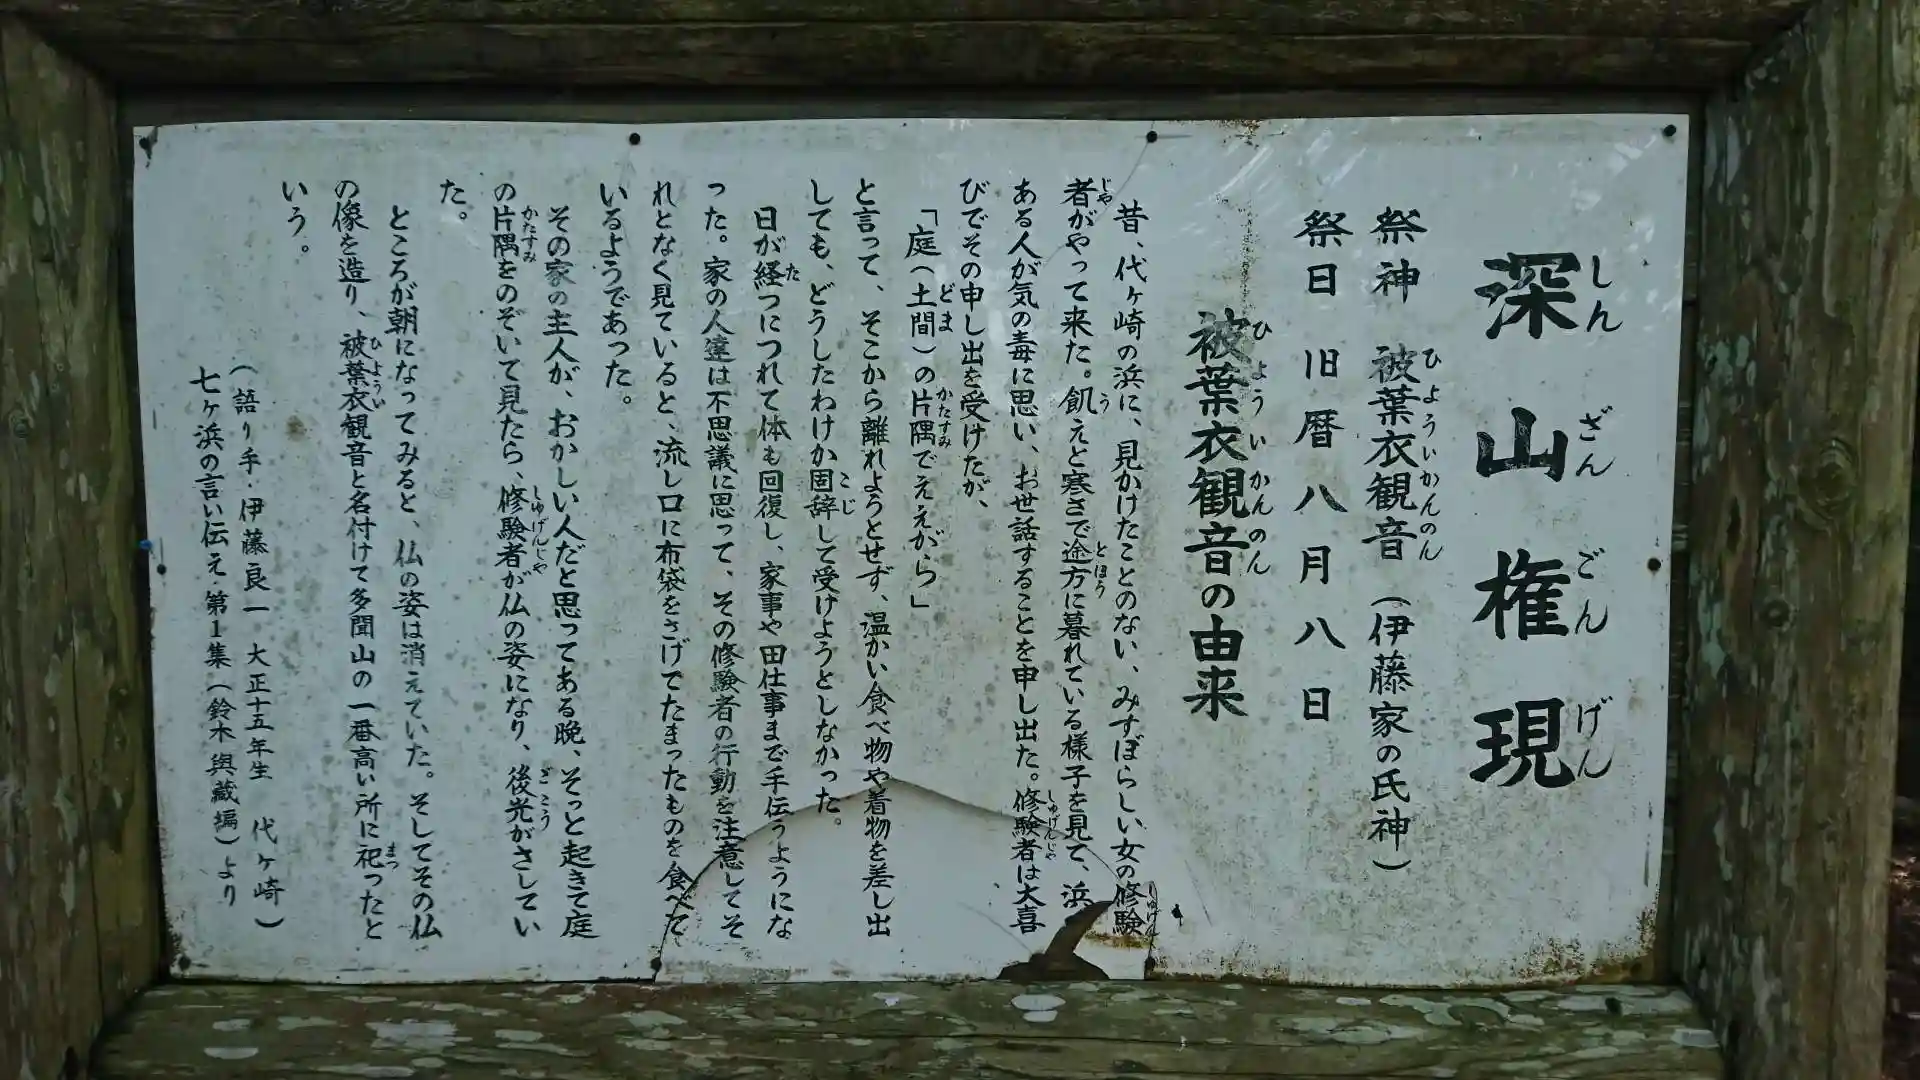 深山権現
祭神 被葉衣観音(伊藤家の氏神)
祭日 旧暦八月八日
被葉衣観音の由来
昔、代ヶ崎の浜に、見かけたことのない、みすぼらしい女の修験
者がやって来た。飢えと寒さで途方に暮れている様子を見て、浜
ある人が気の毒に思い、お世話することを申し出た。修験者は大喜
びでその申し出を受けたが、
「庭(土間)の片隅でええがら」
と言って、そこから離れようとせず、温かい食べ物や着物を差し出
しても、どうしたわけか固辞して受けようとしなかった。
日が経つにつれて体も回復し、家事や田仕事まで手伝うようにな
った。家の人達は不思議に思って、その修験者の行動を注意してそ
れとなく見ていると、流し口に布袋をさげてたまったものを食べて
いるようであった。
その家の主人が、おかしい人だと思ってある晩、そっと起きて庭
の片隅をのぞいて見たら、修験者が仏の姿になり、後光がさしてい
た。
ところが朝になってみると、仏の姿は消えていた。そしてその仏
の像を造り、被葉衣観音と名付けて多聞山の一番高い所に祀ったと
いう。
(語り手・伊藤良一 大正十五年生 代ヶ崎)
七ヶ浜の言い伝え・第1集(鈴木與蔵編)より